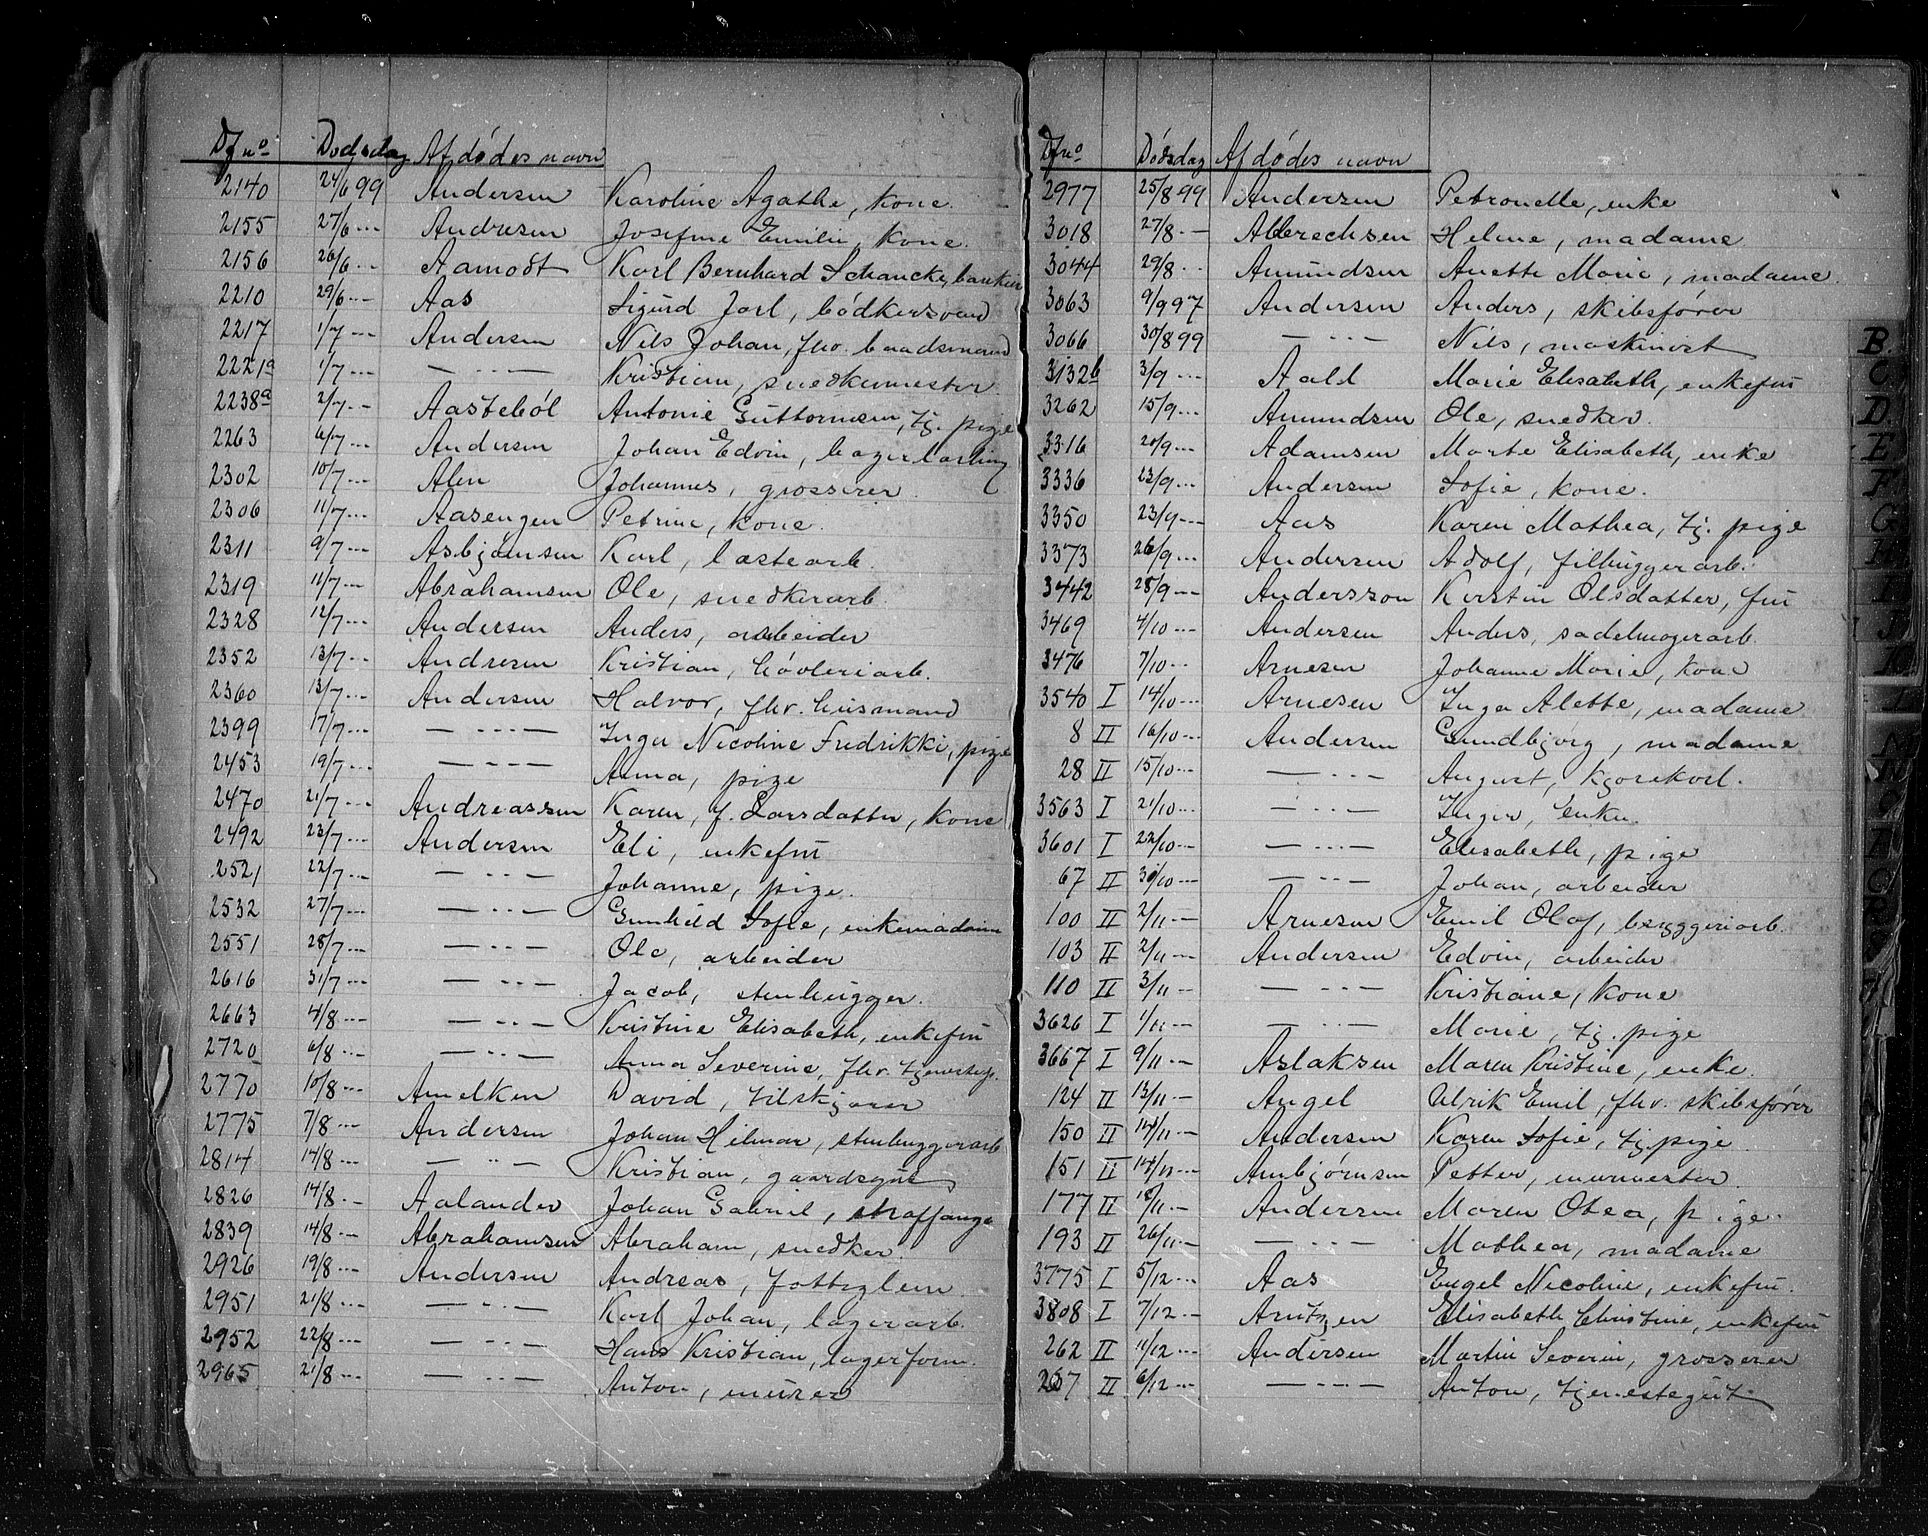 Df no Dødsdag Afdødes navn
2140 24/6 99 Andersen Karoline Agathe, kone.
2155 27/6 --- Andresen Josefine Emilie, kone.
2156 26/6 -- Aamodt Karl Bernhard Schancke, bankier
2210 29/6 --- Aas Sigurd Jarl, bødkersvend
2217 1/7 --- Andersen Nils Johan, fhv. baadsmand
2221a 1/7 --- — - - — Kristian, snedkermester
2238a 2/7 --- Aastebøl Antonie Guttormsen, tj. pige
2263 6/7 --- Andersen Johan Edvin,
2302 10/7 --- Alen Johannes, grosserer
2306 11/7 --- Aasengen Petrine, kone.
2311 9/7 --- Asbjørnsen Karl, lastearb.
2319 11/7 --- Abrahamsen Ole, snedkerarb.
2328 12/7 --- Andersen Anders, arbeider
2352 13/7 --- Andresen Kristian, høvleriarb.
2360 13/7 --- Andersen Halvor, fhv. husmand
2399 17/7 --- — - - — Inga Nicoline Fredrikke, pige
2453 19/7 --- — - - — Anna, pige
2470 21/7 --- Andreassen Karen, f. Larsdatter, kone
2492 23/7 --- Andersen Eli, enkefru
2521 22/7 --- — - - — Johanne, pige.
2532 27/7 --- — - - — Gunhild Sofie, enkemadam
2551 28/7 --- — - - — Ole, arbeider
2616 31/7 --- — - - — Jacob, stenhugger.
2663 4/8 --- — - - — Kristine Elisabeth, enkefru
2720 6/8 --- — - - — Anna Severine, fhv. tjenestep.
2770 10/8 --- Amelken David, tilskjærer
2775 7/8 --- Andersen Johan Hilmar, stenhuggerarb
2814 14/8 --- — - - — Kristian, gaardsgut
2826 14/8 -- Aalander Johan Gabriel, straffange
2839 14/8 --- Abrahamsen Abraham, snedker.
2926 19/8 --- Andersen Andreas, fattiglem.
2951 21/8 --- — - - — Karl Johan, lagerarb.
2952 22/8 --- — - - — Hans Kristian, lagerform.
2965 21/8 --- — - - — Anton, murer
Dfno Dødsdag Afdødes navn
2977 25/8 99 Andersen Petronelle, enke
3018 27/8 -- Albrechsen Helene, madame
3044 29/8 -- Amundsen Anette Marie, madame.
3063 9/9 97 Andersen Anders, skibsfører
3066 30/8 99 — - - — Nils, maskinist
3132b 3/9 --- Aald Marie Elisabeth, enkefru
3262 15/9 --- Amundsen Ole, snedker.
3316 20/9 --- Adamsen Marte Elisabeth, enke
3336 23/9 --- Andersen Sofie, kone.
3350 23/9 --- Aas Karen Mathea, tj. pige
3373 26/9 --- Andersen Adolf, filhuggerarb.
3442 28/9 --- Andersson Kerstin Olsdatter, fru
3469 4/10 --- Andersen Anders, sadelmagerarb.
3476 7/10 -- Arnesen Johanne Marie, kone
3540 I 14/10 --- Arnesen Inga Alette, madame
8 II 16/10 --- Andersen Gundbjørg, madame
28 II 15/10 --- — - - — August, kjørekarl.
3563 I 21/10 --- — - - — Inger, enke.
3601 I 22/10 --- — - - — Elisabeth, pige
67 II 30/10 --- — - - — Johan, arbeider
100 II 2/11 --- Arnesen Emil Olaf, bryggeriarb.
103 II 2/11 --- Andersen Edvin, arbeider
110 II 3/11 --- — - - — Kristiane, kone
3626 I 1/11 --- — - - — Marie, tj. pige
3667 I 9/11 -- Aslaksen Maren Kristine, enke.
124 II 13/11 -- Angel Ulrik Emil, fhv. skibsfører
150 II 14/11 -- Andersen Karen Sofie, tj. pige
151 II 14/11 --- Arnbjørnsen Petter, murmester.
177 II /11 -- Andersen Maren Olea, pige.
193 II 26/11 -- — - - — Mathea, madame
3775 I 5/12 --- Aas Engel Nicoline, enkefru.
3808 I 7/12 --- Arntzen Elisabeth Christine, enkefru
262 II 11/12 --- Andersen Martin Severin, grosserer
II 6/12 --- — - - — Anton, tjenestegut
B.
C.
D.
E.
F.
G.
H.
I.
J.
K.